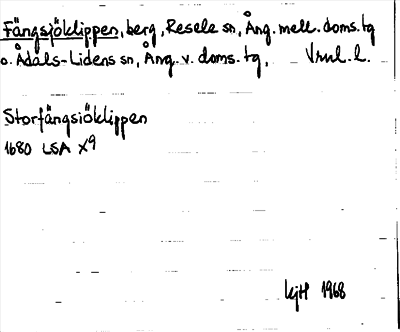 Fängsjöklippen, berg, Resele sn, Ång. mell. doms. tg
o. Ådals-Lidens sn, Ång. v. doms. tg, Vnnl. l.
Storfängsiöklippen
1680 LSA X9
1968